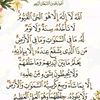 اللَّهُ لَا إِلَٰهَ إِلَّا هُوَ الْحَيُّ الْقَيُّومُ
لَا تَأْخُذُهُ سِنَةٌ وَلَا نَوْمٌ
لَّهُ مَا فِي السَّمَاوَاتِ وَمَا فِي الْأَرْضِ
مَن ذَا الَّذِي يَشْفَعُ عِندَهُ إِلَّا بِإِذْنِهِ
يَعْلَمُ مَا بَيْنَ أَيْدِيهِمْ وَمَا خَلْفَهُمْ
وَلَا يُحِيطُونَ بِشَيْءٍ مِّنْ عِلْمِهِ إِلَّا بِمَا شَاءَ
وَسِعَ كُرْسِيُّهُ السَّمَاوَاتِ وَالْأَرْضَ
وَلَا يَئُودُهُ حِفْظُهُمَا
وَهُوَ الْعَلِيُّ الْعَظِيمُ